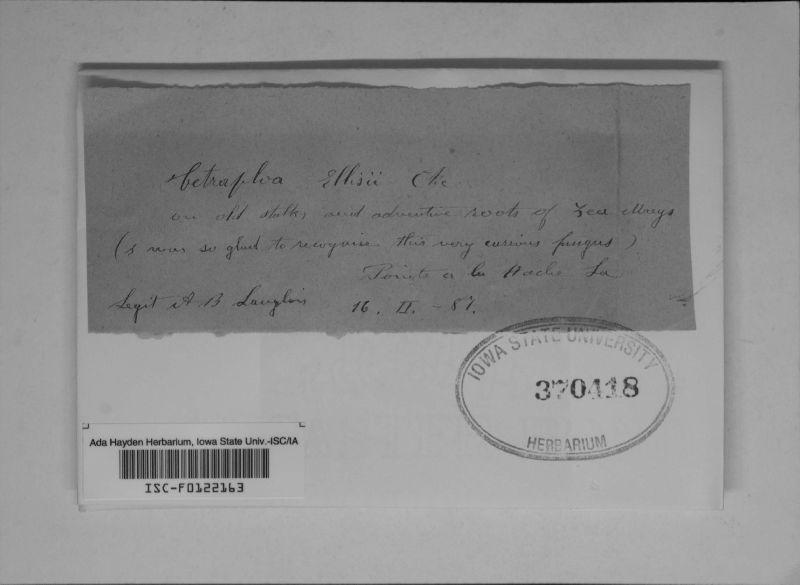 Tetraploa Ellisii Cke
on old stalks and adventive roots of Zea Mays
(I was so glad to recognise this very curious fungus)
Pointe a la Hache La
Legit A. B. Langlois 16. II. - 87.
IOWA STATE UNIVERSITY
370418
HERBARIUM
Ada Hayden Herbarium, Iowa State Univ.-ISC/IA
ISC-F0122163